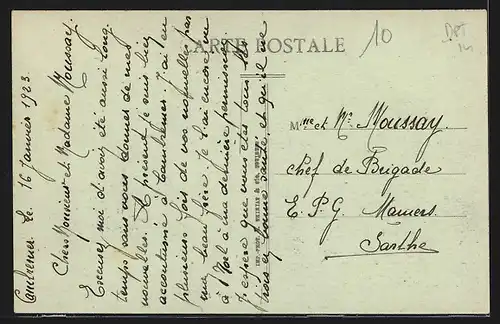 CARTE POSTALE
10
Cambremer le 16 Janvier 1923.
Chers Monsieur et Madame Moussay.
Excusez moi d'avoir été aussi long-
temps sans vous donner de mes
nouvelles. A présent je suis bien
accoutumé à Cambremer. J'ai eu
plusieurs fois de vos nouvelles par
mon beau frère. Je l'ai encore vu
à Noël à ma dernière permission
J'espère que vous êtes tous les
trois en bonne santé, et qu'il ne
Mme et Mr Moussay.
Chef de Brigade
E. P. G. Mamers.
Sarthe